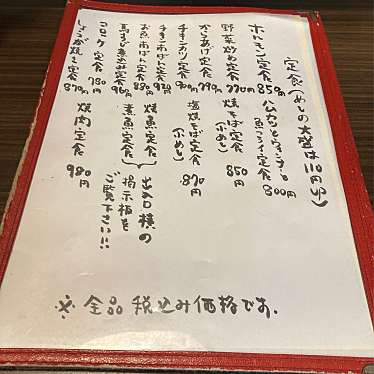 定食(めしの大盛は110円UP)
ホルモン定食 850円
野菜炒め定食 770円
からあげ定食 770円
チキンカツ定食 900円
チキン南ばん定食 920円
お魚南ばん定食 880円
馬すじ煮込み定食 960円
コロッケ定食 780円
しょうが焼き定食 870円
ハムカツとウィンナーと
魚フライ定食 800円
焼そば定食 850円
(小めし)
塩焼そば定食 870円
(小めし)
焼魚定食
煮魚定食
出入口横の
掲示板を
ご覧下さい!!
焼肉定食 980円
※全品税込み価格です.